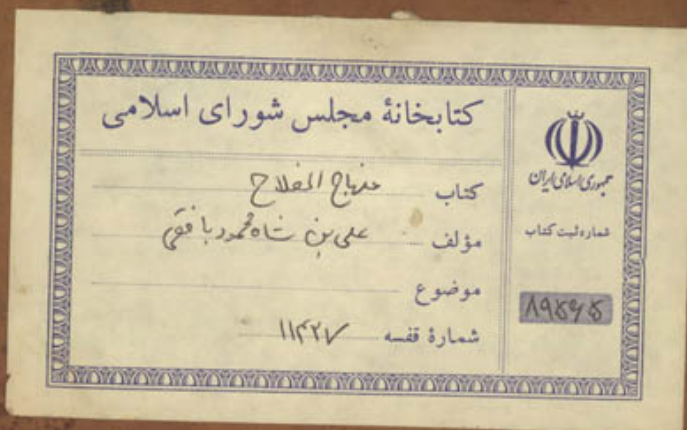 کتابخانهٔ مجلس شورای اسلامی
کتاب منهاج الفلاح
مؤلف علی بن شاه محمود بافقی
موضوع
شمارهٔ قفسه ۱۱۴۲۷
جمهوری اسلامی ایران
شماره ثبت کتاب